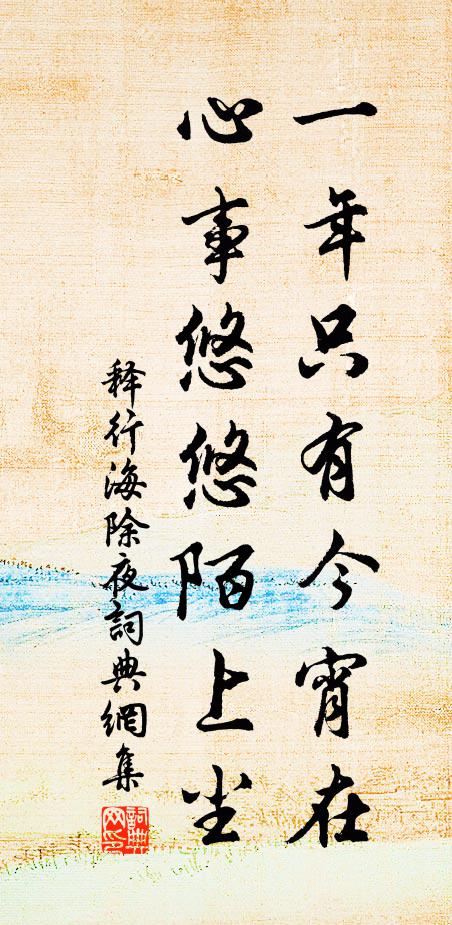 一年只有今宵在
心事悠悠陌上尘
释行海除夜詞典網集
詞典網印